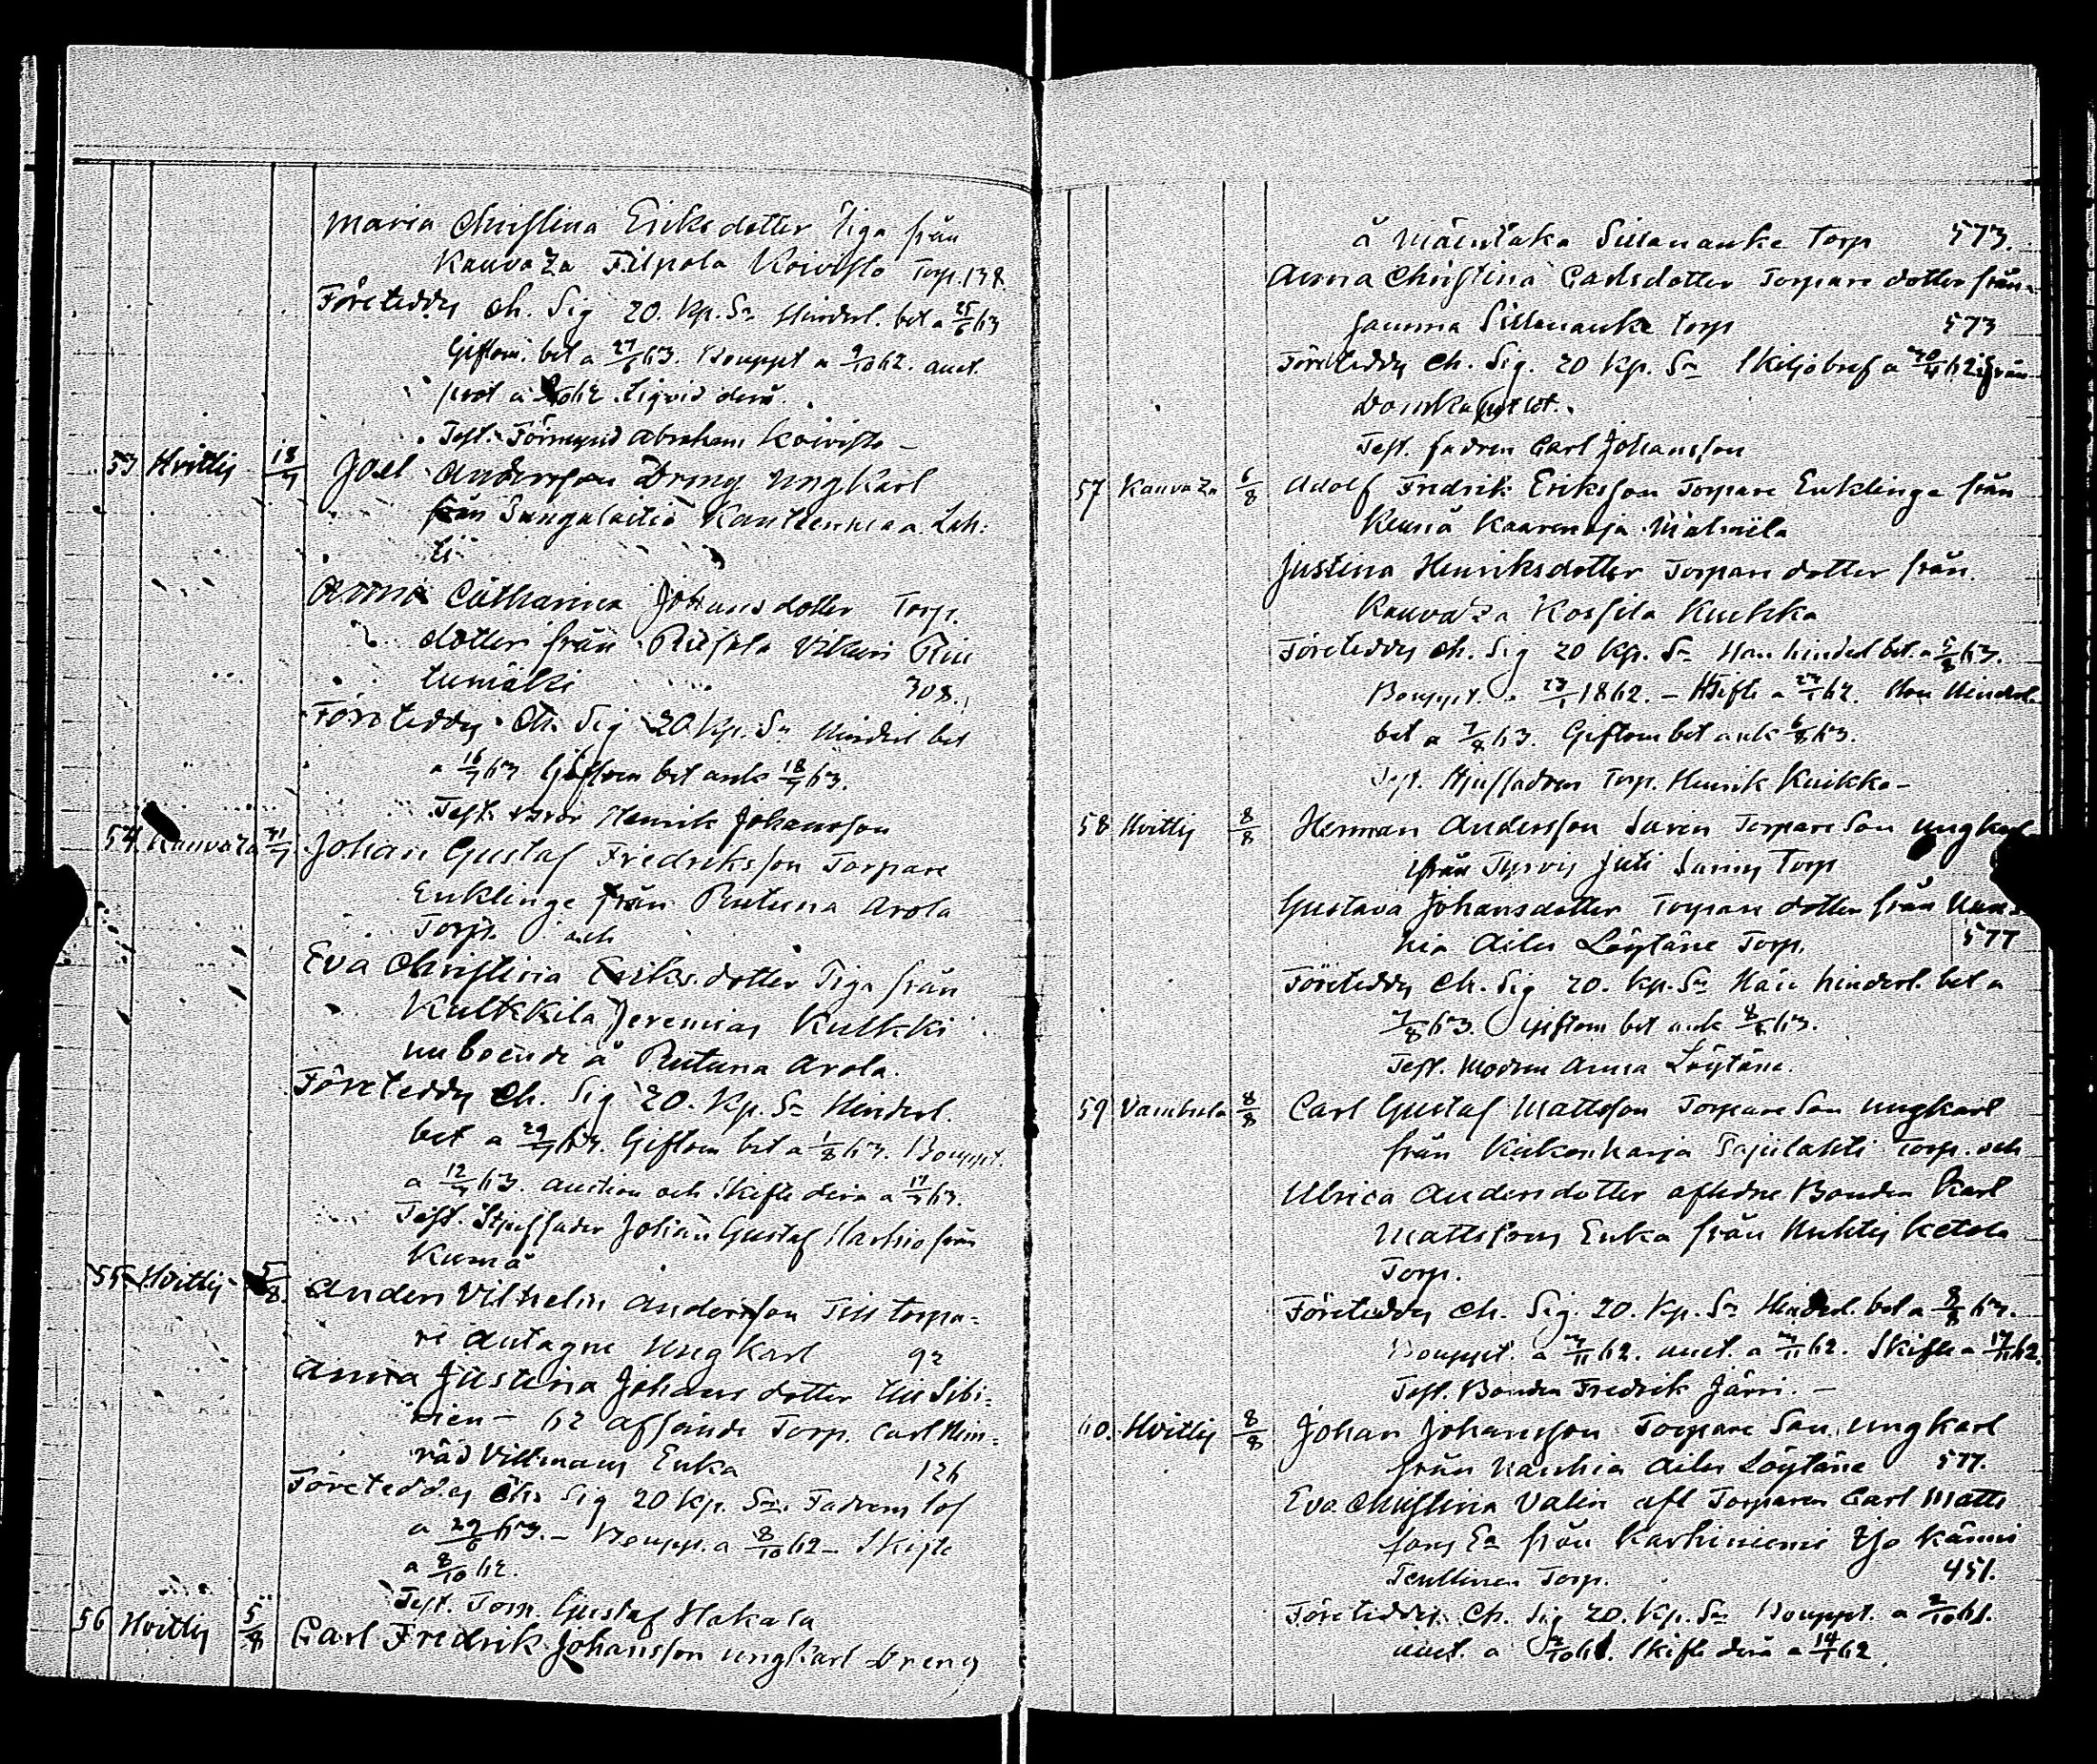 Maria Christina Eriksdotter Piga från
Kauvaza Filpola Koivisto Torp. 138.
Företeddes Ch. Sig 20. Kp. Sr Hinderl. bet a 25/6 63
Giftom. bet a 27/6 63. Bouppt a 9/10 62. auct.
prot a /10 62. Liqvid derå.
Test. Förmynd Abraham Koivisto –
53 Hvittis 18/7 Joel Andersson Dreng Ungkarl
från Sungulaitio Kanteenmaa Lah:
ti
Anna Catharina Johansdotter Torp.
dotter från Riesola Vitkari Rin
tumäki 308.
Företeddes Ch. Sig 20 Kp. Sr Hinderl bet
a 16/7 63 Giftom bet ank 18/7 63.
Test. bror Henrik Johansson
54 Kauvaza 31/7 Johan Gustaf Fredriksson Torpare
Enklinge från Rutuna Arola
Torp. och
Eva Christina Eriksdotter Piga från
Kulkkila Jeremias Kulkki
nu boende å Rutuna Arola.
Företeddes Ch. Sig 20. Kp. Sr Hinderl.
bet a 29/7 63. Giftom bet a 1/8 63. Bouppt.
a 12/7 63. Auction och Skifte derå a 17/7 63.
Test. Stjuffader Johan Gustaf Harhio från
Kumå
55 Hvittis 5/8 Anders Vilhelm Andersson Till torpa=
re Antagne Ungkarl 92
Anna Justina Johansdotter
62 Torp. Carl
Enka 126
Företeddes Ch. Sig 20 Kp. Sr. Fadrens lof
a 29/6 63. – Boupp. a 8/10 62 – Skifte
a 8/10 62.
Test. Torp. Gustaf Hakala
56 Hvittis 5/8 Carl Fredrik Johansson Ungkarl Dreng
å Mäentaka Sillanauke Torp 573.
Anna Christina Carlsdotter Torpare dotter från
samma Sillanauke Torp 573
Företeddes Ch. Sig. 20 Kp. Sr Skiljobref a 62 ifrån
Domkapitlet.
Test. fadren Carl Johansson
57 Kauvaza 6/8 Adolf Fredrik Eriksson Torpare Enklinge från
Kumå Kaarenoja Malmila
Justina Henriksdotter Torpare dotter från
Kauvaza Kossila Kuckka
Företeddes Ch. Sig 20 Kp. Sr Han hinderl bet. a 5/8 63.
Bouppt. a 1862. – Skifte a 62. Hon Hinderl.
bet a 7/8 63. Giftom bet ank 6/8 63.
Test. Stjuffadren Torp. Henrik Kuikka –
58 Hvittis 8/8 Herman Andersson Saren Torpare Son Ungkarl
ifrån Tyrvis Juti Torp
Gustava Johansdotter Torpare dotter från Kan=
hia Ailus Löytäne Torp. 577
Företeddes Ch. Sig 20. Kp. Sr Han hinderl. bet a
7/8 63. Giftom bet ank 8/8 63.
Test. Modren Anna Löytäne.
59 Vambula 8/8 Carl Gustaf Mattsson Torpare Son Ungkarl
från Kiikonharja Torp. och
Ulrica Andersdotter aflidne Bonden Karl
Mattssons Enka från Huhtis Ketola
Torp.
Företeddes Ch. Sig. 20. Kp. Sr Hinderl. bet a 8/8 63.
Bouppt. a 3/11 62. auct. a 3/11 62. Skifte a 17/11 62.
Test. Bonden Fredrik Järvi. –
60. Hvittis 8/8 Johan Johansson Torpare Son Ungkarl
från Kanhia Ailus Löytäne 577.
Eva Christina Valin afl Torparen Carl Matts
sons Ea från Karhiniemi Yso Känni
Torp. 451.
Företeddes Ch. Sig 20. Kp. Sr Bouppt. a 2/10 61.
auct. a 2/10 61. Skifte derå a 14/1 62.